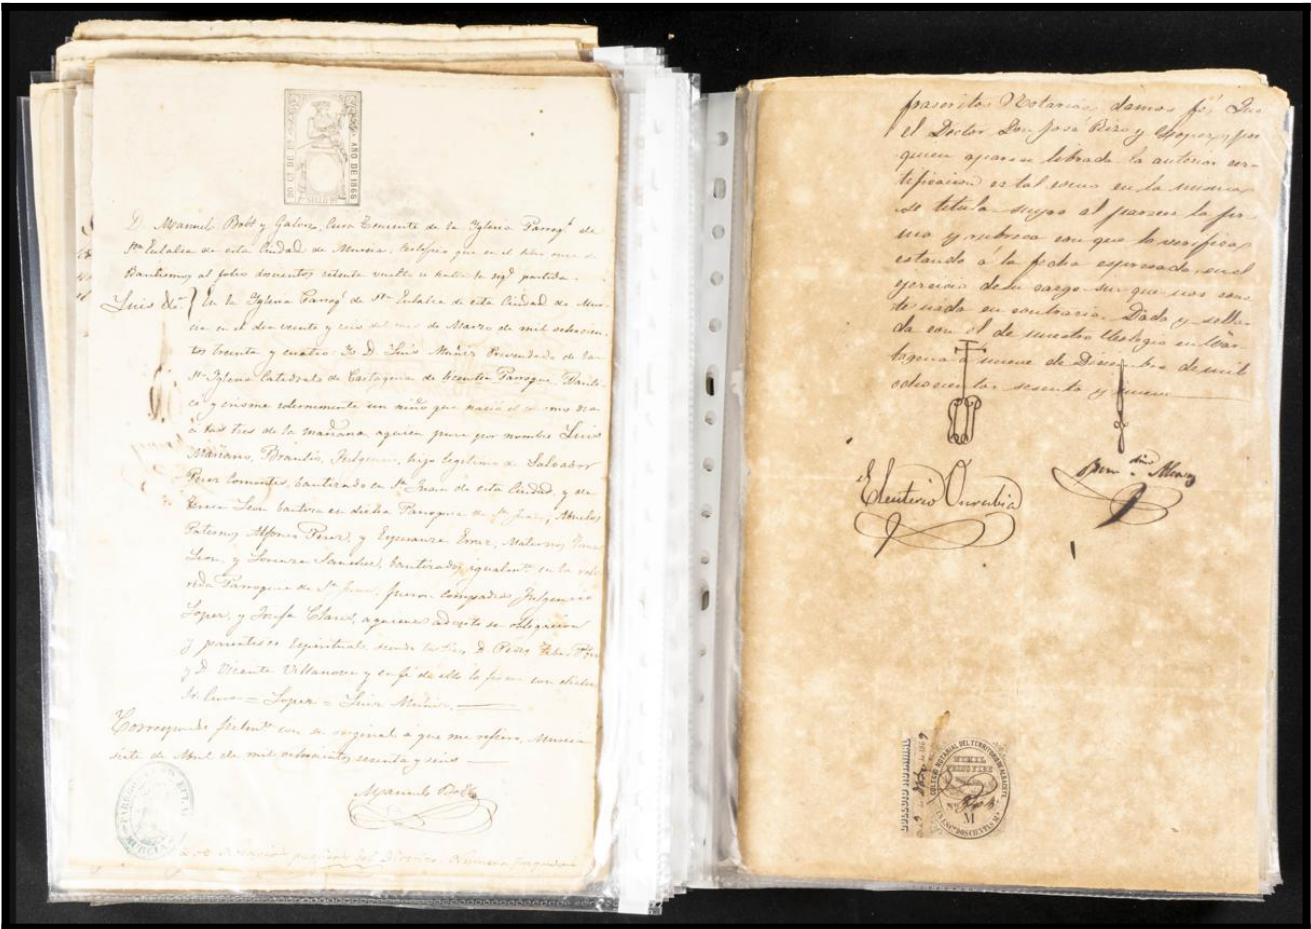 AÑO DE 1866
D. Manuel Bott y Galvez, Cura Teniente de la Yglesia Parroq.l de
Sta Eulalia de esta Ciudad de Murcia. Certifico que en el libro once de
Bautismos al folio doscientos setenta vuelto se halla la sig.te partida.
Luis &a
En la Yglesia Parroq.l de Sta Eulalia de esta Ciudad de Mur-
cia en el dia veinte y seis del mes de Marzo de mil ochocien-
tos treinta y cuatro. Yo D. Luis Muñoz Prevendado de la
Sta Yglesia Catedral de Cartagena de licentia Parroqui Bauti-
cé y crisme solemnemente un niño que nacio el mismo dia
a las tres de la mañana, aquien puse por nombre Luis
Mariano, Braulio, Fulgencio, hijo legitimo de Salvador
Perez bautizado en Sn Juan de esta Ciudad, y de
Teresa Leon bautiza en dicha Parroquia de Sn Juan, Abuelos
Paternos Alfonso Perez, y Esperanza Maternos
Leon, y Sanchez, bautizados igualmte en la refe-
rida Parroquia de Sn Juan, fueron compadres Fulgencio
Lopez, y Josefa aquienes adverti su obligacion
y parentesco Espiritual, siendo testigos D. Pedro
y D. Vicente Villanueva y en fe de ello lo firmo con dicho
Sr. Cura = Lopez = Luis Muñoz.
Corresponde con su original a que me refiero, Murcia
siete de Abril de mil ochocientos sesenta y seis
Manuel Bott
MURCIA
frascritos Notarios, damos fé: Que
el Doctor Don José Rizo y Lopez, por
quien aparece librada la anterior cer-
tificacion es tal como en la misma
se titula suyos al parecer la fir-
ma y rubrica con que lo verifica,
estando á la fecha espresada en el
ejercicio de su cargo sin que nos cons-
te nada en contrario. Dada y sella-
da con el de nuestro Colegio en Car-
tagena á nueve de Diciembre de mil
ochocientos sesenta y nueve
Eleuterio
COLEGIO NOTARIAL DEL TERRITORIO DE ALBACETE
NIHIL
PRIUS FIDE
M
DOSCIENTAS M.